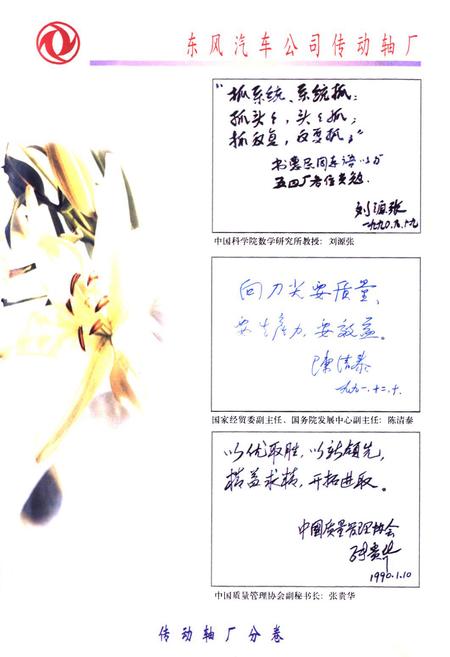 东风汽车公司传动轴厂
"抓系统、系统抓;
抓头头,头头抓;
抓反复,反复抓。"
刘源张
一九九〇.九.十九
中国科学院数学研究所教授:刘源张
向刀尖要质量、
要生产力、要效益。
陈清泰
一九九一.十二.十
国家经贸委副主任、国务院发展中心副主任:陈清泰
以优取胜,以新领先,
精益求精,开拓进取。
中国质量管理协会
张贵华
1990.1.10
中国质量管理协会副秘书长:张贵华
传动轴厂分卷